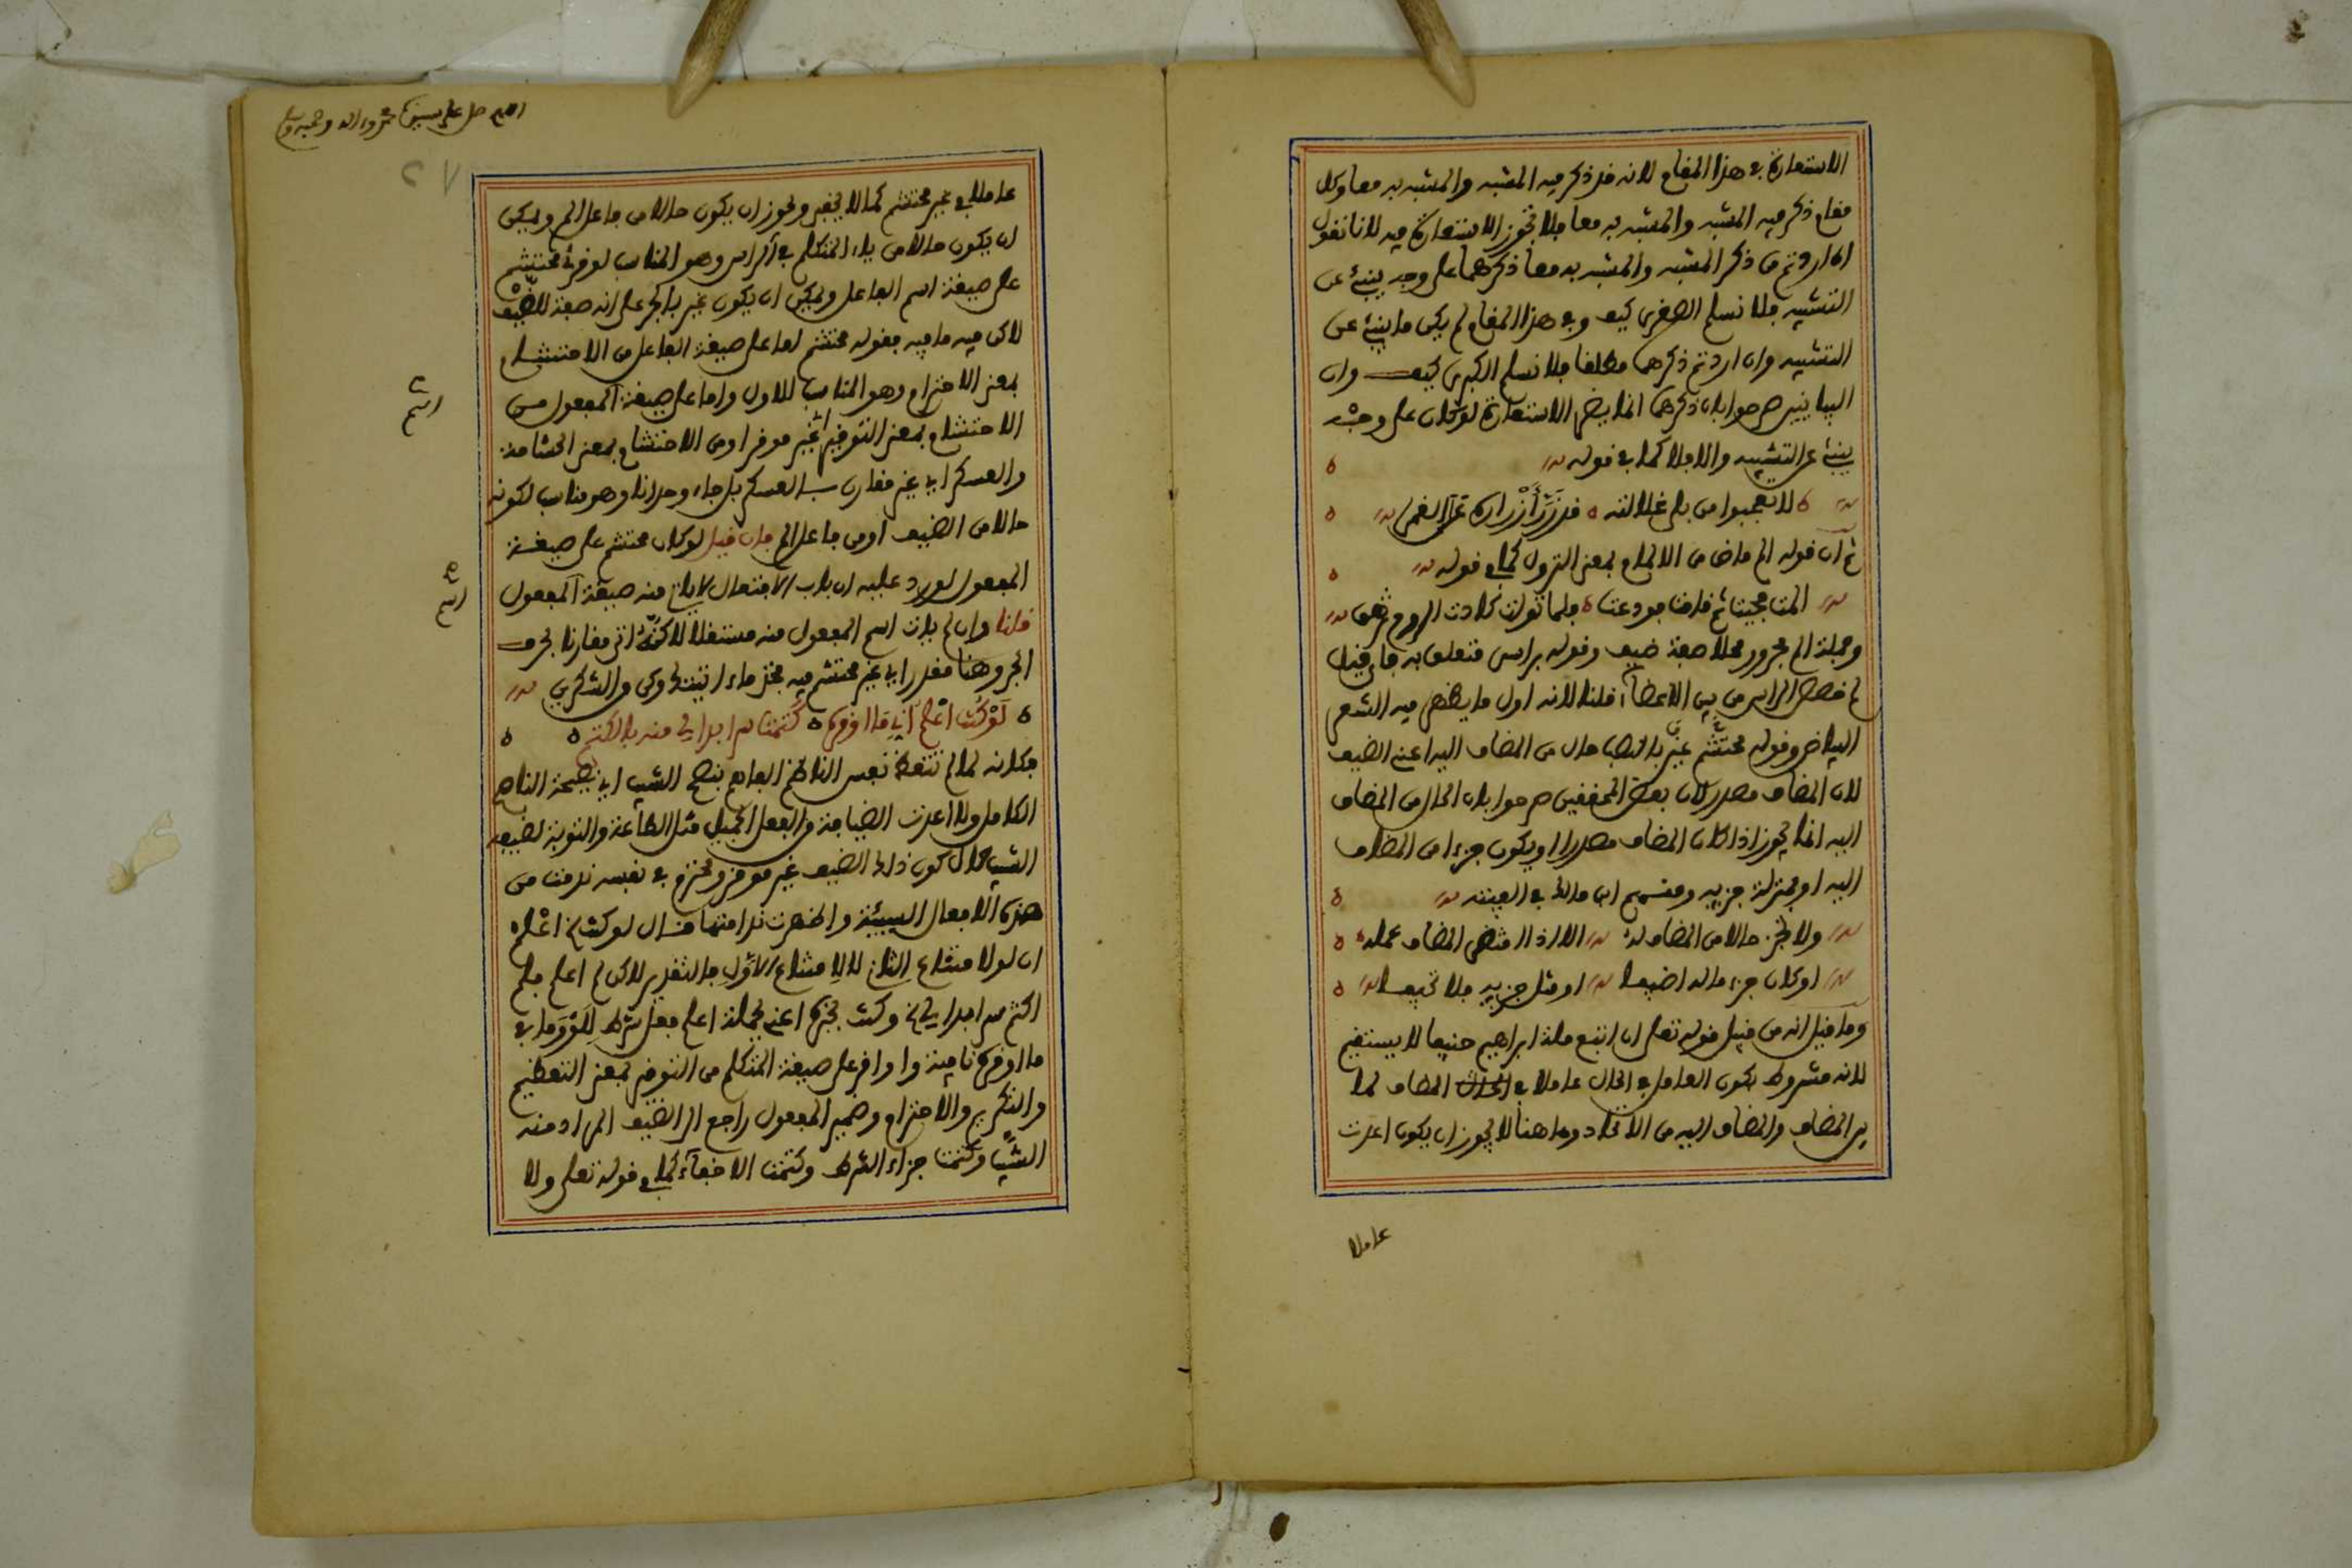 الاستعارة في هذا المقام لانه قد ذكر فيه المشبه والمشبه به معا وكل
مقام ذكر فيه المشبه والمشبه به معا فلا تجوز الاستعارة فيه لانا نقول
ان اردتم من ذكر المشبه والمشبه به معا ذكرهما على وجه ينبئ عن
التشبيه فلا نسلم الصغرى كيف وفي هذا المقام لم يكن ما ينبئ عن
التشبيه وان اردتم ذكرهما مطلقا فلا نسلم الكبرى كيف وان
البيانيين صرحوا بان ذكرهما انما يضر الاستعارة لو كان على وجه
ينبئ عن التشبيه والا فلا كما في قوله
لا تعجبوا من بلى غلالته قد زر أزراره على القمر
ثم ان قوله الم ماض من الالمام بمعنى النزول كما في قوله
المت فحيت ثم قامت فودعت فلما تولت كادت الروح تزهق
وجملة الم مجرور محلا صفة ضيف وقوله براسي متعلق به فان قيل
لم خصص الراس من بين الاعضاء قلنا لانه اول ما يظهر فيه الشعر
البياض وقوله محتشم غير بالنصب حال من المضاف اليه اعني الضيف
لان المضاف مصدر لان بعض المحققين صرحوا بان الحال من المضاف
اليه انما يجوز اذا كان المضاف مصدرا او يكون جزءا من المضاف
اليه او بمنزلة جزيه ومنهم ابن مالك في الفيته
ولا تجز حالا من المضاف له الا اذا اقتضى المضاف عمله
او كان جزء ما له اضيفا او مثل جزيه فلا تحيفا
وما قيل انه من قبيل قوله تعلى ان اتبع ملة ابراهيم حنيفا لا يستقيم
لانه مشروط بكون العامل في الحال عاملا في المضاف لما
بين المضاف والمضاف اليه من الاتحاد وها هنا لا يجوز ان يكون اعدت
عاملا
اللهم صل على سيدنا محمد واله وصحبه وسلم
٢٧
عاملا في غير محتشم كما لا يخفى ويجوز ان يكون حالا من فاعل الم ويمكن
ان يكون حالا من ياء المتكلم في الراس وهو المناسب لو قرئ محتشم
على صيغة اسم الفاعل ويمكن ان يكون غير بالجر على انه صفة للضيف
لاكن فيه ما فيه فقوله محتشم اما على صيغة الفاعل من الاحتشام
بمعنى الاحترام وهو المناسب للاول واما على صيغة المفعول من
الاحتشام بمعنى التوقير اي غير موقر او من الاحتشام بمعنى الحشامة
والعسكر اي غير مقارن بالعسكر بل جاء وحدانا وهو مناسب لكونه
حالا من الضيف او من فاعل الم فان قيل لو كان محتشم على صيغة
المفعول لورد عليه ان باب الافتعال لا يات منه صيغة المفعول
قلنا وان لم يات اسم المفعول منه مستقلا لاكنه اتى مقارنا بحرف
الجر وهنا مقدر اي غير محتشم فيه
لو كنت اعلم اني ما اوقره كتمت سرا بدا لي منه بالكتم
فكانه لما لم تتعظ نفس الناظم الفاهم بنصح الشيب اي نصيحة الناصح
الكامل ولا اعدت الضيافة من الفعل الجميل مثل الطاعة والتوبة لضيف
الشيب حال كون ذلك الضيف غير موقر ومحترم في نفسه ندمت من
هذه الافعال السيئة واظهرت ندامتها فقال لو كنت اعلم
اكتم سرا بدا لي وكنت بخبره اعني بجملة اعلم فعل شرط للو وما في
ما اوقره نافية واوقر على صيغة المتكلم من التوقير بمعنى التعظيم
والتكريم والاحترام وضمير المفعول راجع الى الضيف المراد منه
الشيب وكتمت جزاء الشرط وكتمت الاخفاء كما في قوله تعلى ولا